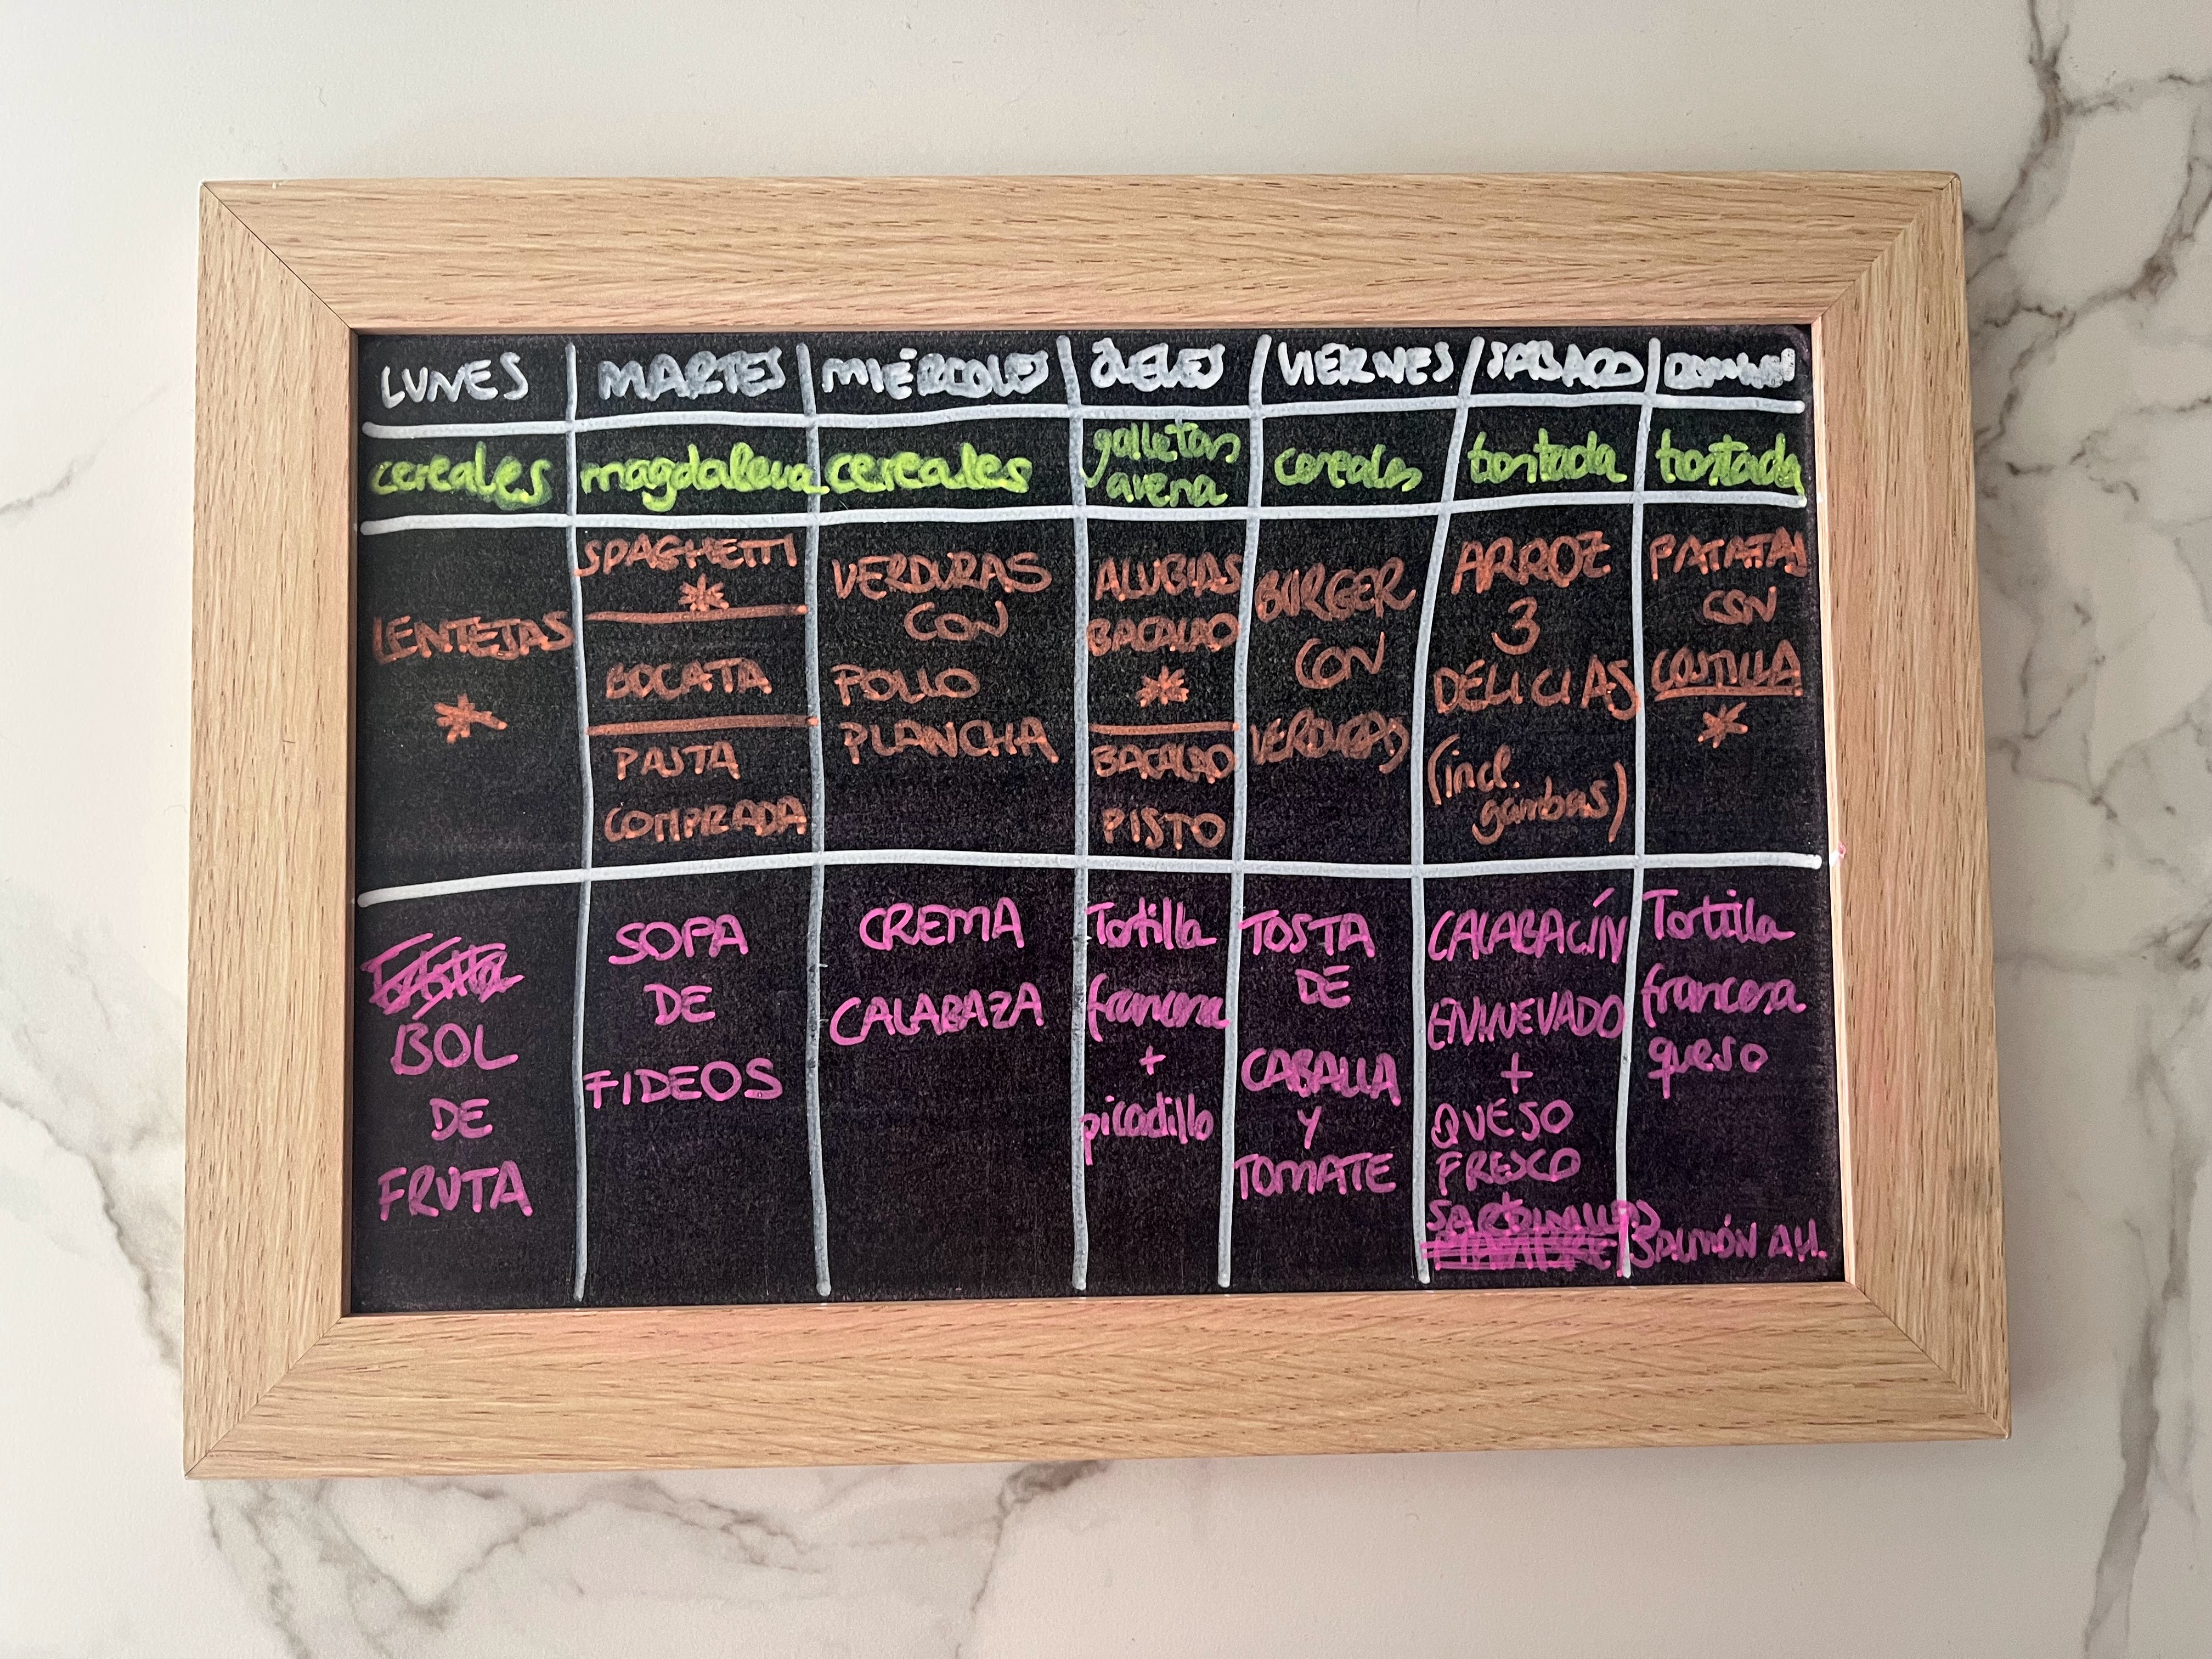 LUNES MARTES MIÉRCOLES JUEVES VIERNES SÁBADO DOMINGO
cereales magdalena cereales galletas avena cereales tostada tostada
LENTEJAS
*
SPAGHETTI
*
BOCATA
PASTA
COMPRADA
VERDURAS
CON
POLLO
PLANCHA
ALUBIAS
BACALAO
*
BACALAO
PISTO
BURGER
CON
VERDURAS
ARROZ
3
DELICIAS
(incl.
gambas)
PATATAS
CON
COSTILLA
*
BOL
DE
FRUTA
SOPA
DE
FIDEOS
CREMA
CALABAZA
Tortilla
francesa
+
picadillo
TOSTA
DE
CABALLA
Y
TOMATE
CALABACÍN
ENNEVADO
+
QUESO
FRESCO
Tortilla
francesa
queso
SALMÓN AH.